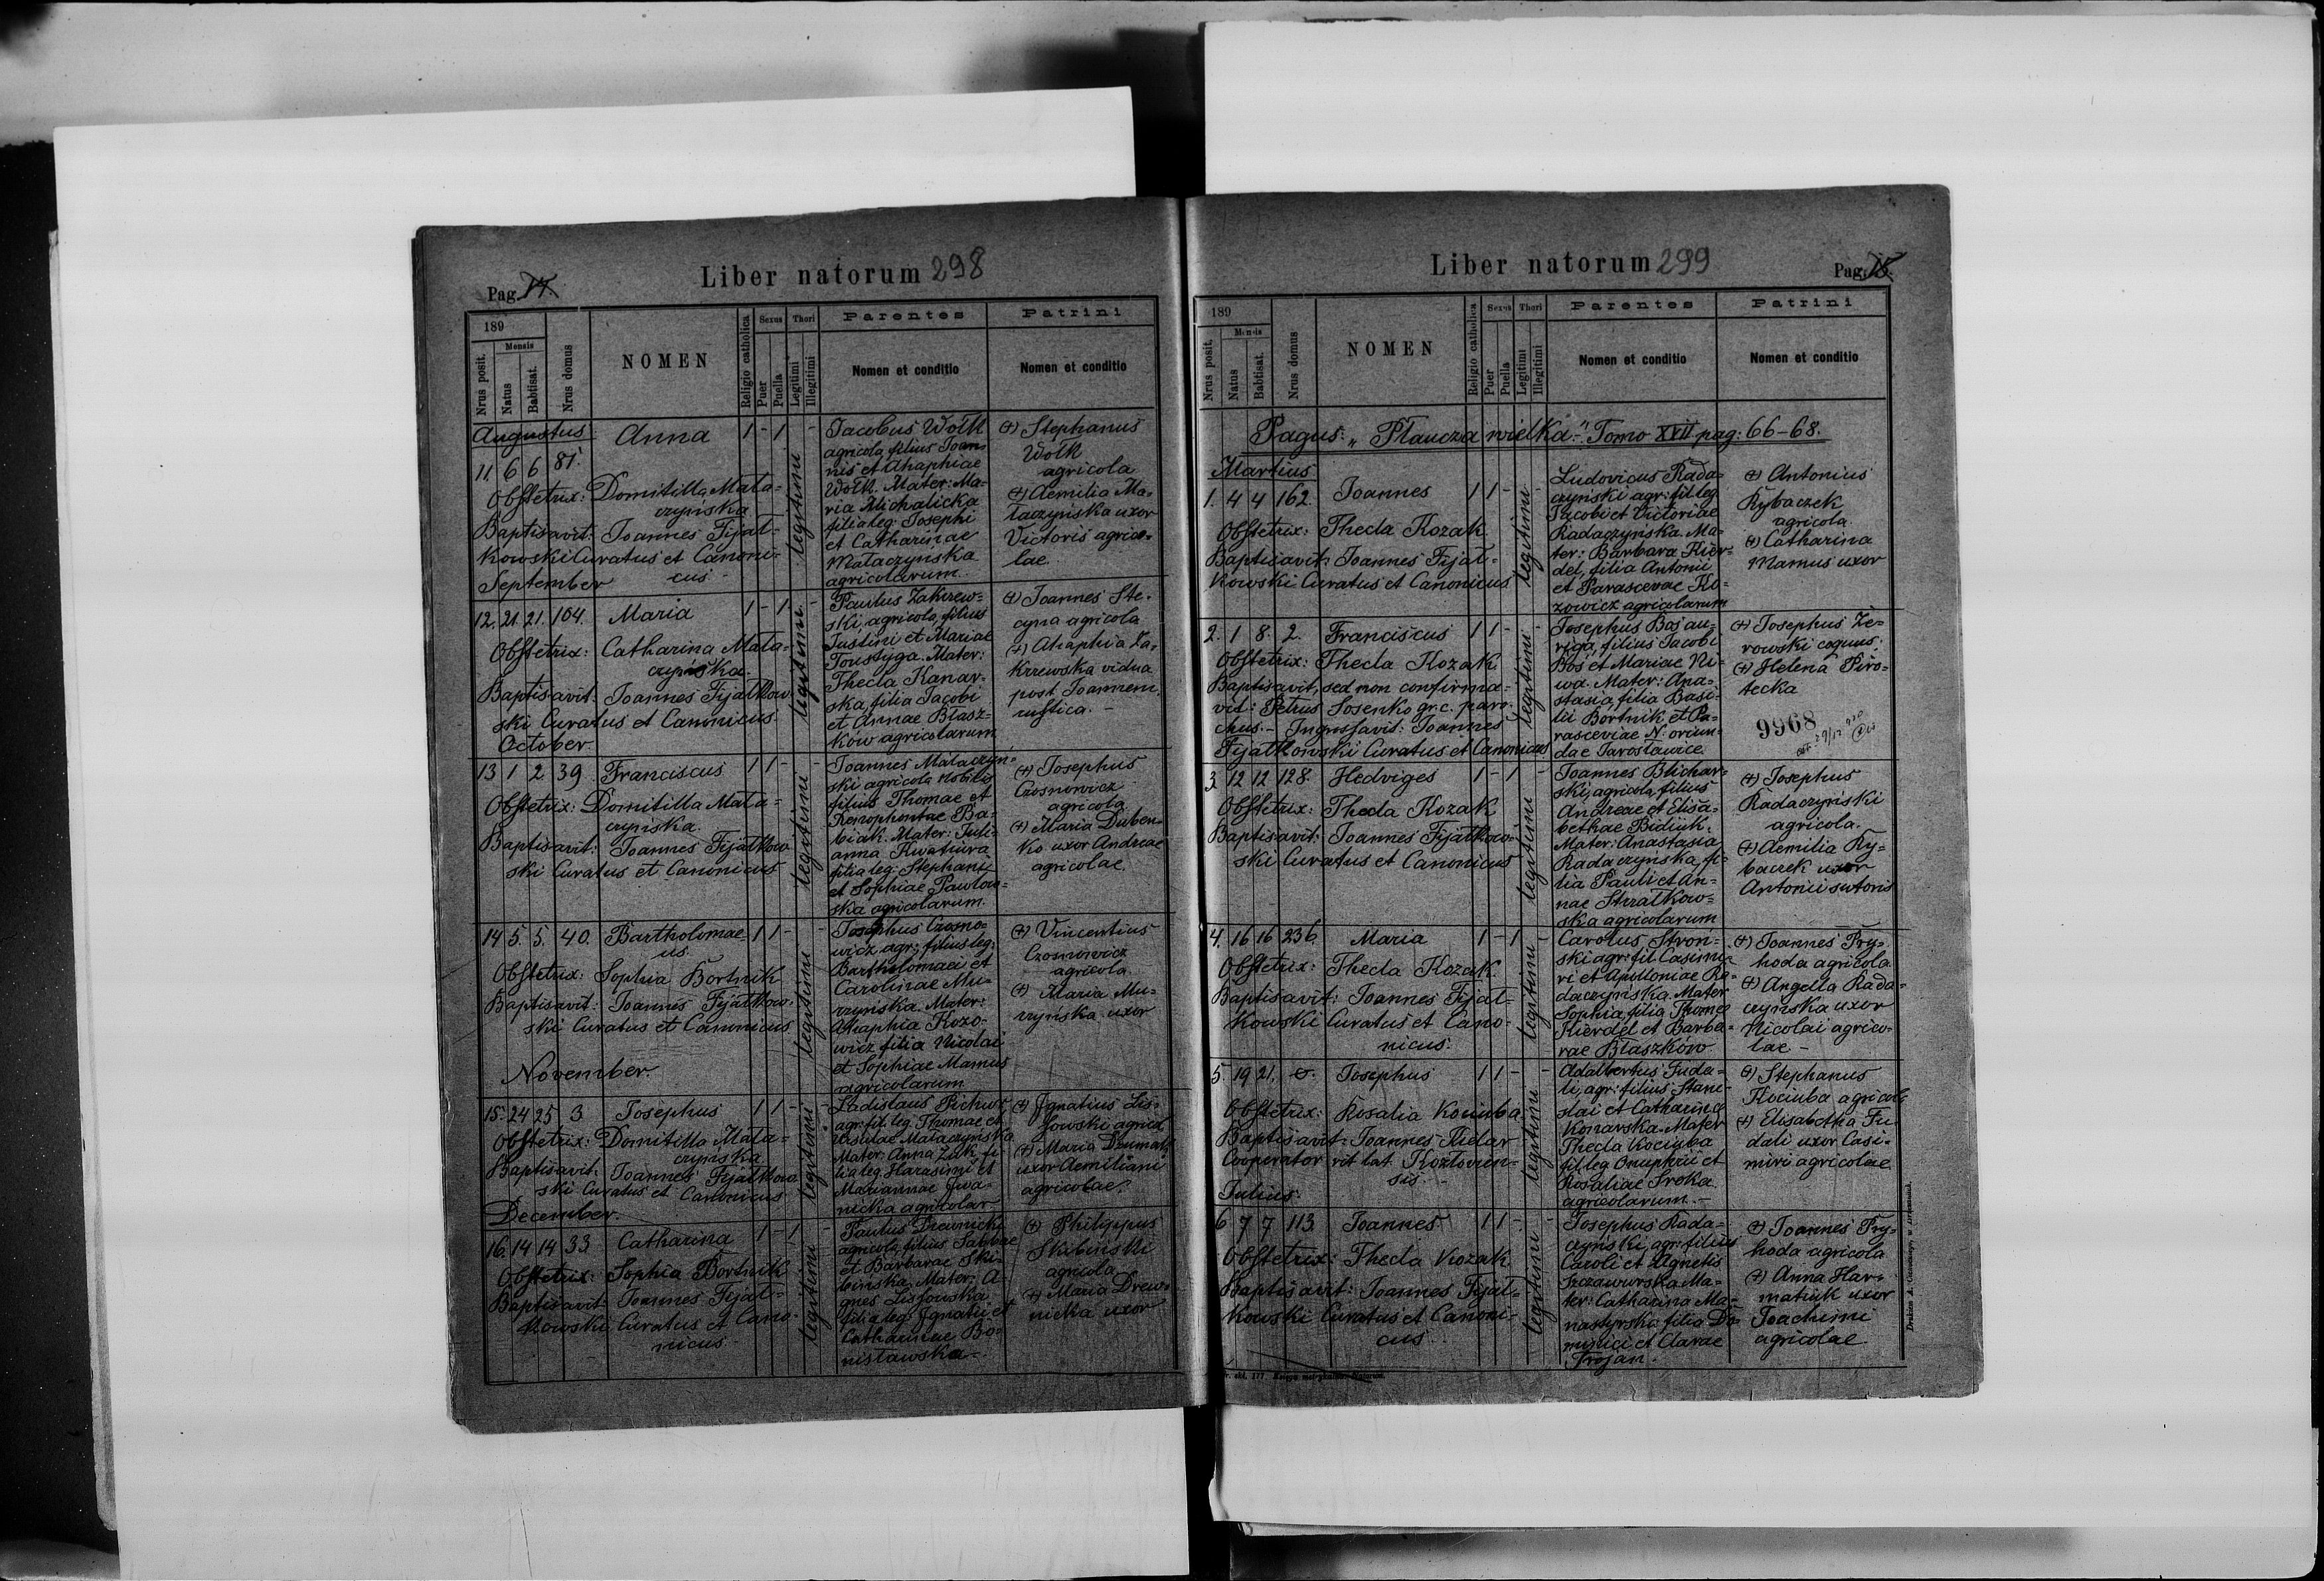 Pag. 14.
Liber natorum 298
189
Mensis
Nrus posit.
Natus
Babtisat.
Nrus domus
NOMEN
Religio catholica
Sexus
Puer
Puella
Thori
Legitimi
Illegitimi
Parentes
Nomen et conditio
Patrini
Nomen et conditio
Augustus
11. 6 6 81. Anna 1 - 1 -
Obstetrix: Domitilla Mata=
czyńska
Baptisavit: Joannes Fijał=
kowski Curatus et Canoni=
cus.
legitimi
Jacobus Wołk
agricola, filius Joan=
nis et Ahaphiae
Wołk. Mater: Ma=
ria Michalicka
filia leg: Josephi
et Catharinae
Mataczyńska
agricolarum.
(+) Stephanus
Wołk
agricola
(+) Aemilia Ma=
taczyńska uxor
Victoris agrico=
lae.
September
12. 21. 21. 104. Maria 1 - 1 -
Obstetrix: Catharina Mata=
czyńska.
Baptisavit: Joannes Fijałkow=
ski Curatus et Canonicus.
legitimi
Paulus Zakrzew=
ski, agricola, filius
Justini et Mariae
Toustyga. Mater:
Thecla Kanar=
ska, filia Jacobi
et Annae Błasz=
ków agricolarum
(+) Joannes Ste=
cyna agricola
(+) Ahaphia Za=
krzewska vidua
post Joannem,
rustica. -
October
13 1 2 39 Franciscus 1 1 - -
Obstetrix: Domitilla Mata=
czyńska.
Baptisavit: Joannes Fijałkow=
ski Curatus et Canonicus
legitimi
Joannes Mataczyń=
ski agricola nobilis
filius Thomae et
Xenophontae Ba=
biak. Mater: Juli=
anna Kwatiura
filia leg. Stephani
et Sophiae Pawłow=
ska agricolarum.
(+) Josephus
Czosnowicz
agricola
(+) Maria Duben=
ko uxor Andreae
agricolae.
14 5. 5. 40. Bartholomae= 1 1 - -
us.
Obstetrix: Sophia Bortnik
Baptisavit: Joannes Fijałkow=
ski Curatus et Canonicus
legitimi
Josephus Czosno=
wicz agr: filius leg:
Bartholomaei et
Carolinae Mu=
rzyńska. Mater:
Ahaphia Kozo=
wicz, filia Nicolai
et Sophiae Mamus
agricolarum
(+) Vincentius
Czosnowicz
agricola
(+) Maria Mu=
rzyńska uxor
November.
15. 24 25 3 Josephus 1 1 - -
Obstetrix: Domitilla Mata=
czyńska
Baptisavit: Joannes Fijałkow=
ski Curatus et Canonicus
legitimi
Ladislaus
agr: fil. leg. Thomae et
Ursulae Mataczyńska
Mater: Anna Zak fi=
lia leg. Harasimi et
Mariannae Iwa=
nicka agricolar.
(+) Ignatius Lis=
sowski agricol
(+) Maria
uxor Aemiliani
agricolae.
December.
16. 14 14 33 Catharina 1 - 1 -
Obstetrix: Sophia Bortnik
Baptisavit: Joannes Fijał=
kowski Curatus et Cano=
nicus.
legitimi
Paulus Drewnicki
agricola, filius Sabbae
et Barbarae Ski=
bińska. Mater: A=
gnes Lissowska
filia leg. Ignatii et
Catharinae Bo=
nisławska.
(+) Philippus
Skibiński
agricola
(+) Maria Drew=
nicka uxor
Liber natorum 299
Pag. 15.
189
Mensis
Nrus posit.
Natus
Babtisat.
Nrus domus
NOMEN
Religio catholica
Sexus
Puer
Puella
Thori
Legitimi
Illegitimi
Parentes
Nomen et conditio
Patrini
Nomen et conditio
Pagus: "Płaucza wielka." Tomo XVII pag: 66-68.
Martius
1. 4 4 162. Joannes 1 1 - -
Obstetrix: Thecla Kozak.
Baptisavit: Joannes Fijał=
kowski Curatus et Canonicus
legitimi
Ludovicus Rada=
czyński agr: fil: leg
Jacobi et Victoriae
Radaczyńska. Ma=
ter: Barbara Kier=
del, filia Antonii
et Parascevae Ko=
zowicz agricolarum
(+) Antonius
Rybaczek
agricola.
(+) Catharina
Mamus uxor
2. 1 8. 2. Franciscus 1 1 - -
Obstetrix: Thecla Kozak
Baptisavit, sed non confirma=
vit: Petrus Sosenko gr. c. paro=
chus. - Ingrossavit: Joannes
Fijałkowski Curatus et Canonicus
legitimi
Josephus Boś au=
riga, filius Jacobi
Boś et Mariae Ni=
wa. Mater: Ana=
stasia, filia Basi=
lii Bortnik et Pa=
rasceviae N. oriun=
dae Jarosławice.
(+) Josephus Że=
rowski coquus.
(+) Helena Piro=
tecka
9968
3 12 12 128. Hedviges 1 - 1 -
Obstetrix: Thecla Kozak
Baptisavit: Joannes Fijałkow=
ski Curatus et Canonicus
legitimi
Joannes Blichar=
ski, agricola, filius
Andreae et Elisa=
bethae Bidiuk.
Mater: Anastasia
Radaczyńska, fi=
lia Pauli et An=
nae Strzałkow=
ska agricolarum
(+) Josephus
Radaczyński
agricola.
(+) Aemilia Ry=
baczek uxor
Antonii sutoris
4. 16 16 236. Maria 1 - 1 -
Obstetrix: Thecla Kozak.
Baptisavit: Joannes Fijał=
kowski Curatus et Cano=
nicus.
legitimi
Carolus Stroń=
ski agr: fil. Casimi=
ri et Apolloniae Ra=
daczyńska. Mater
Sophia, filia Thomae
Kierdel et Barba=
rae Błaszków.
(+) Joannes Pry=
hoda agricola
(+) Angella Rada=
czyńska uxor
Nicolai agrico=
lae -
5. 19 21. Josephus 1 1 - -
Obstetrix: Rosalia Kociuba
Baptisavit: Joannes Kielar
Cooperator rit. lat. Kozłovien=
sis. -
legitimi
Adalbertus Fuda=
li, agr: filius Stani=
slai et Catharinae
Konarska. Mater
Thecla Kociuba
fil. leg. Onuphrii et
Rosaliae Sroka
agricolarum. -
(+) Stephanus
Kociuba agricola
(+) Elisabetha Fu=
dali uxor Casi=
miri agricolae
Julius.
6 7 7 113 Joannes 1 1 - -
Obstetrix: Thecla Kozak
Baptisavit: Joannes Fijał=
kowski Curatus et Canoni=
cus.
legitimi
Josephus Rada=
czyński, agr. filius
Caroli et Agnetis
Szczawurska Ma=
ter: Catharina Ma=
nastyrska filia Do=
minici et Clarae
Trojan.
(+) Joannes Pry=
hoda agricola
(+) Anna Har=
matiuk uxor
Joachimi
agricolae